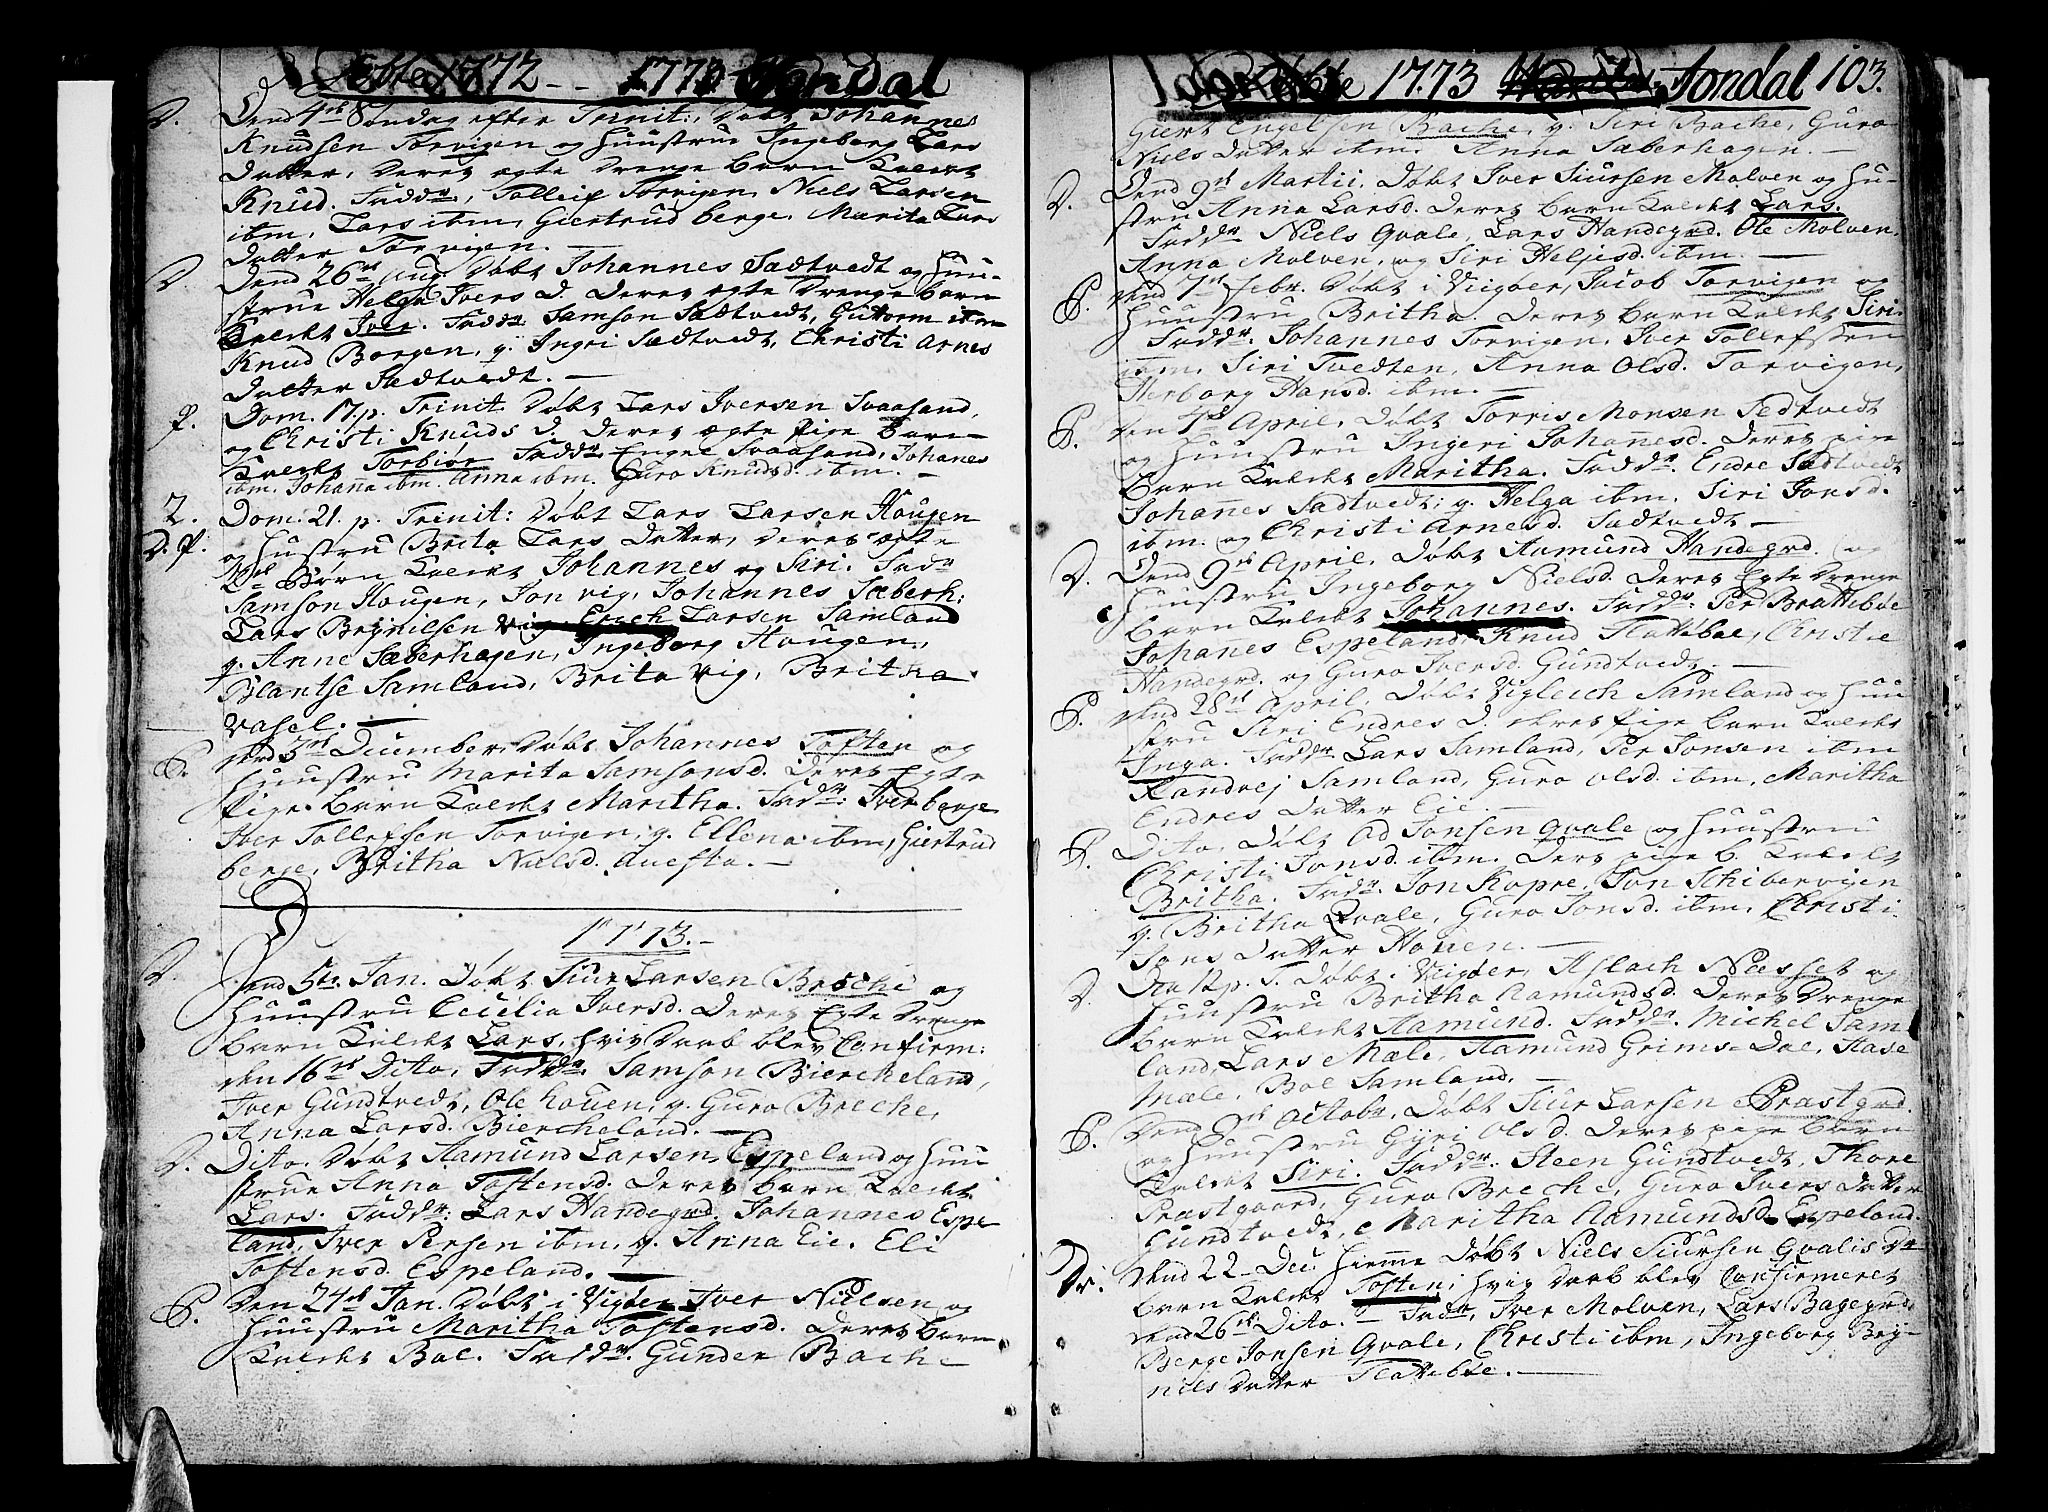 Døbte 1772 - - 1773 Jondal
D. Dend 4de Søndag efter Trinit: Døbt Johannes
Knudsen Torvigen og Huustrue Ingeborg Lars
Datter, Deres ægte Drenge barn Kaldet
Knud. Fadd: Tolleif Torvigen, Niels Larsen
ibm, Lars ibm, Giertrud berge. Marita Lars
Datter Torvigen. —
D. Dend 26de Aug. Døbt Johannes Sædtvedt og Huu-
strue Helga Ivers D. Deres ægte Drenge barn
Kaldet Iver. Fadd: Samson Sædtvedt, Guttorm ibm
Knud Borgen, q. Ingri Sædtvedt, Christi Arnes
Datter Sædtvedt. —
P. Dom. 17. p. Trinit. Døbt Lars Iversen Svaasand,
og Christi Knuds D. Deres ægte Pige Barn
Kaldet Torbiør Fadd: Engel Svaasand, Johanes
ibm. Johanna ibm. Anna ibm. Guro Knudsd. ibm. —
2. Dom. 21. p. Trinit: Døbt Lars Larsen Hougen
D. P. og Hustru Brita Lars Datter, deres ægte
2de Børn Kaldet Johannes og Siri. Fadr
Samson Hougen, Jon vig, Johannes Sæberh:
Lars Brynilsen vig Erich Larsen Samland
q. Anne Sæberhagen, Ingeborg Hougen,
Blantse Samland, Brita vig, Britha
Vasel. —
P. dend 3de December, Døbt Johannes Toften og
Huustru Marita Samsonsd. Deres Egte
Pige Barn Kaldet Maritha. Fadr: Iver berge
Iver Tollefsen Torvigen, q. Ellena ibm, Giertrud
berge, Britha Nielsd. Auesta. —
1773. —
D. Dend 5te Jan. Døbt Siur Larsen Breche og
Huustru Cecilia Iversd. Deres Egte Drenge
barn Kaldet Lars, hvis Daab blev Confirm:
den 16de Dito, Fadd: Samson Biercheland,
Iver Gundtvedt, Ole houen, q. Guro Breche,
Anna Larsd. Biercheland. —
D. Dito. Døbt Aamund Larsen, Espeland og Huu
strue Anna Tostensd. Deres barn Kaldet
Lars. Fadd: Lars Handegrd. Johannes Espe
land, Iver Persen ibm, q. Anna Eie. Eli
Tostensd. Espeland. —
P. Den 24de Jan. Døbt i Vigøer Iver Nielsen og
Huustru Maritha Tostensd. Deres barn
Kaldet Boe. Fadd: Gunder Bache
Døbte 1773 Jondal 103.
Giert Engelsen Bache, q. Siri Bache, Guro
Niels Datter ibm. Anna Sæberhagen. —
D. Dend 9de Martii. Døbt Iver Siursen Molven og Hu-
stru Anna Larsd. Deres barn Kaldet Lars.
Fadd: Niels Qvale, Lars Handegrd. Ole Molven,
Anna Molven, og Siri Heljesd. ibm. —
P. dend 7de Febr. Døbt i Vigøer, Jacob Torvigen og
Huustru Britha. Deres barn Kaldet Siri.
Fadd: Johannes Torvigen. Iver Tollefsen
ibm. Siri Tvedten, Anna Olsd. Torvigen,
Herborg Hansd. ibm. —
P. den 4de April, Døbt Torris Monsen Sedtvedt
og Huustru Ingeri Johannesd. Deres pige
Barn Kaldet Maritha. Fadd: Endre Sædtvedt
Johannes Sædtvedt; q. Helga ibm. Siri Jonsd.
ibm. og Christi Arnesd. Sædtvedt —
D. Dend 9de April, Døbt Aamund Handegrd. og
Huustru Ingeborg Nielsd. Deres Egte Drenge
barn Kaldet Johannes. Fadd: Per Brattebøe
Johannes Espeland, Knud Flattebøe, Christie
Handegrd. og Guro Iversd. Gundtvedt. —
P. dend 28de April, Døbt Vigleich Samland og Huu
stru Siri Endres D. deres Pige barn Kaldet
Inga. Fadd: Lars Samland, Per Jonsen ibm
Randvej Samland, Guro Olsd. ibm, Maritha
Endres Datter Eie. —
P. Dito, Døbt Od Jonsen Qvale og Huustru
Christi Jonsd. ibm. Deres pige b. Kaldet
Britha. Fadr: Jon Kopre, Jon Schibervigen
q. Britha Qvale, Guro Jonsd. ibm, Christi
Jons Datter Houen. —
D. p. T. Døbt i Vigøer, Aslach Næsset og
Huustru Britha Aamundsd. Deres Drenge
barn Kaldet Aamund. Fadd: Michel Sam-
land, Lars Mæle, Aamund Grims-Dal, Aase
Mæle, Boe Samland. —
P. Dend 9de Octobr, Døbt Siur Larsen Præstgrd.
og Huustru Gyri Olsd. Deres pige barn
Kaldet Siri. Fadd: Steen Gundtvedt, Thore
Præstgaard, Guro Breche, Guro Ivers Datter
Gundtvedt, Maritha Aamundsd. Espeland.
Dr. dend 22 - Dec. hiemme Døbt Niels Siursen Qvalis Dr
barn Kaldet Tosten, hvis Daab blev Confirmeret
dend 26de Dito. — Fadr, Iver Molven, Lars Bagegrd.
Berge Jonsen Qvale, Christi ibm, Ingeborg Bry-
nils Datter Flattebøe. —